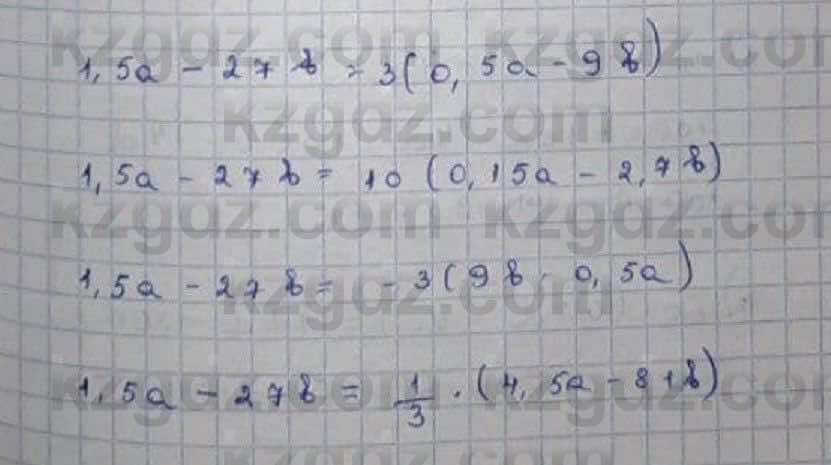 1,5a - 27b = 3(0,5a - 9b)
1,5a - 27b = 10 (0,15a - 2,7b)
1,5a - 27b = - 3(9b - 0,5a)
1,5a - 27b = 1/3 · (4,5a - 81b)
kzgdz.com
kzgdz.com
kzgdz.com
kzgdz.com
kzgdz.com
kzgdz.com